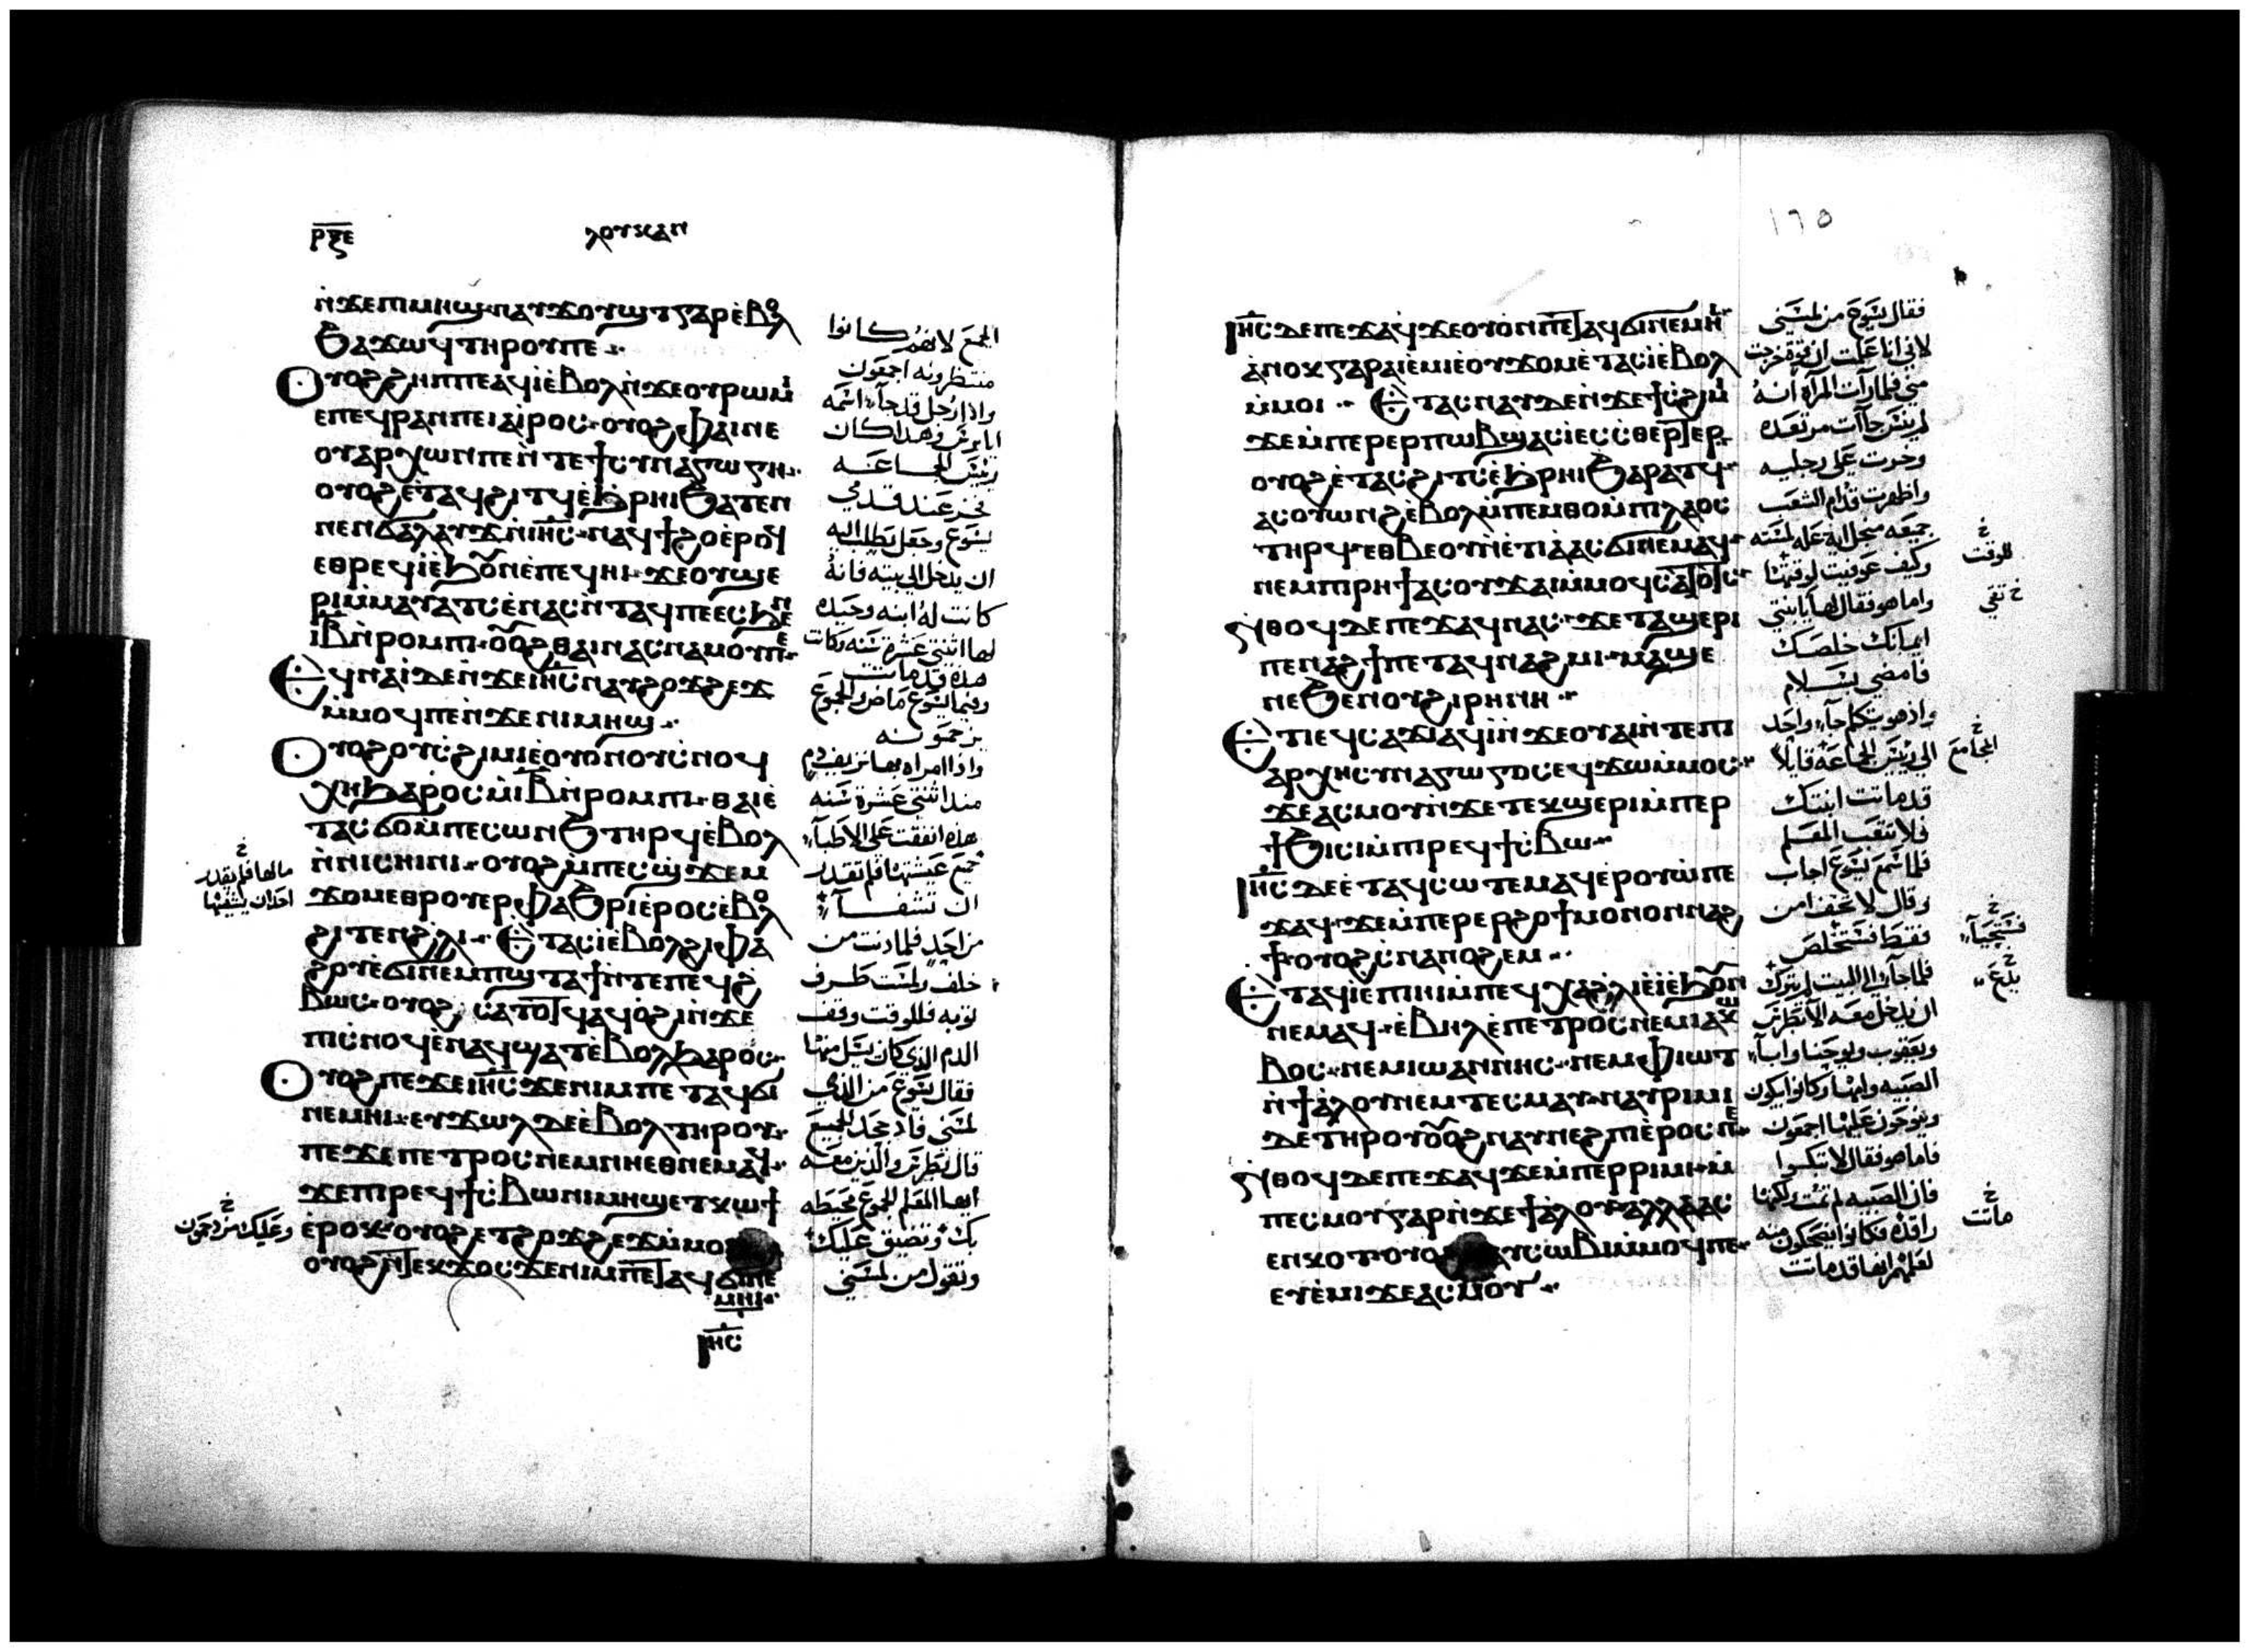 ⲣⲝⲉ
ⲗⲟⲩⲕⲁⲛ
ⲛ̇ϫⲉⲡⲓⲙⲏϣ· ⲛⲁⲩϫⲟⲩϣⲧ ⲅⲁⲣ ⲉ̇ⲃⲟⲗ
ϧⲁϫⲱϥ ⲧⲏⲣⲟⲩ ⲡⲉ
ⲟⲩⲟϩ ϩⲏⲡⲡⲉ ⲁϥⲓ̀ ⲉ̇ⲃⲟⲗ ⲛ̇ϫⲉⲟⲩⲣⲱⲙⲓ
ⲉⲡⲉϥⲣⲁⲛ ⲡⲉ ⲓⲁⲓ̈ⲣⲟⲥ· ⲟⲩⲟϩ ⲫⲁⲓ ⲛⲉ
ⲟⲩⲁⲣⲭⲱⲛ ⲡⲉ ⲛ̇ⲧⲉ ϯⲥⲩⲛⲁⲅⲱⲅⲏ
ⲟⲩⲟϩ ⲉ̇ⲧⲁϥϩⲓⲧϥ ⲉ̇ϧⲣⲏⲓ ϧⲁⲧⲉⲛ
ⲛⲉⲛϭⲁⲗⲁⲩϫ ⲛ̇ⲓⲏ̅ⲥ̅· ⲛⲁϥϯϩⲟ ⲉ̇ⲣⲟϥ
ⲉⲑⲣⲉϥⲓ̀ ⲉ̇ϧⲟⲩⲛ ⲉ̇ⲡⲉϥⲏⲓ· ϫⲉ ⲟⲩϣⲉ
ⲣⲓ ⲙ̇ⲙⲁⲩⲁⲧⲥ ⲉ̇ⲛⲁⲥⲛ̇ⲧⲁϥ ⲡⲉ ⲉⲥϧⲉⲛ
ⲓ̅ⲃ̅ ⲛ̇ⲣⲟⲙⲡⲓ· ⲟⲩⲟϩ ⲑⲁⲓ ⲛⲁⲥⲛⲁⲙⲟⲩ ⲡⲉ
ⲉϥⲛⲁⲓ̀ ⲇⲉ ⲛ̇ϫⲉⲓⲏ̅ⲥ̅ ⲛⲁⲩϩⲟϫϩⲉϫ
ⲙ̇ⲙⲟϥ ⲡⲉ ⲛ̇ϫⲉⲛⲓⲙⲏϣ
ⲟⲩⲟϩ ⲟⲩⲥ̇ϩⲓⲙⲓ ⲉ̇ⲟⲩⲟⲛ ⲟⲩⲥ̇ⲛⲟϥ
ⲭⲏ ϧⲁⲣⲟⲥ ⲙ̇ⲓ̅ⲃ̅ ⲛ̇ⲣⲟⲙⲡⲓ· ⲑⲁⲓ ⲉ̇
ⲧⲁⲥϭⲟ ⲙ̇ⲡⲉⲥⲱⲛϧ ⲧⲏⲣϥ ⲉ̇ⲃⲟⲗ
ⲛ̇ⲛⲓⲥⲏⲓⲛⲓ· ⲟⲩⲟϩ ⲙ̇ⲡⲉⲥϣϫⲉⲙ
ϫⲟⲙ ⲉⲑⲣⲟⲩⲉⲣⲫⲁϧⲣⲓ ⲉ̇ⲣⲟⲥ ⲉ̇ⲃⲟⲗ
ϩⲓⲧⲉⲛ ϩ̇ⲗⲓ· ⲉ̇ⲧⲁⲥⲓ̀ ⲉ̇ⲃⲟⲗ ϩⲓ ⲫⲁ
ϩⲟⲩ ⲉ̇ϭⲓ ⲛⲉⲙ ⲡϣⲧⲁϯ ⲛ̇ⲧⲉ ⲡⲉϥϩ̇
ⲃⲱⲥ· ⲟⲩⲟϩ ⲥⲁⲧⲟⲧϥ ⲁϥⲟ̇ϩⲓ ⲛ̇ϫⲉ
ⲡⲓⲥ̇ⲛⲟϥ ⲉ̇ⲛⲁϥϣⲁⲧ ⲉ̇ⲃⲟⲗ ϧⲁⲣⲟⲥ
ⲟⲩⲟϩ ⲡⲉϫⲉ ⲓⲏ̅ⲥ̅ ϫⲉ ⲛⲓⲙ ⲡⲉⲧⲁϥϭⲓ
ⲛⲉⲙⲏⲓ· ⲉⲩϫⲱⲗ ⲇⲉ ⲉ̇ⲃⲟⲗ ⲧⲏⲣⲟⲩ
ⲡⲉϫⲉ ⲡⲉⲧⲣⲟⲥ ⲛⲉⲙ ⲛⲏⲉⲑⲛⲉⲙⲁϥ
ϫⲉ ⲡⲓⲣⲉϥϯⲥ̇ⲃⲱ ⲛⲓⲙⲏϣ ⲉⲧⲕⲱϯ
ⲉ̇ⲣⲟⲕ· ⲟⲩⲟϩ ⲉⲧϩⲟϫϩⲉϫ ⲙ̇ⲙⲟ
ⲟⲩⲟϩ ⲛ̇ⲧⲉⲕϫⲟⲥ ϫⲉ ⲛⲓⲙ ⲡⲉⲧⲁϥϭⲓ ⲛⲉ
ⲙⲏⲓ
ⲓⲏ̅ⲥ̅
الجمع لانهم كانوا
منتظرونه اجمعون
واذا رجل قد جآ اسمه
ايايرس وهذا كان
رييس الجماعه
فخر عند قدمي
يسوع وجعل يطلب اليه
ان يدخل الي بيته فانه
كانت له ابنه وحيده
لها اثنتي عشرة سنه وكانت
هذه قد ماتت
وفيما يسوع ماض والجموع
يزحمونه
واذا امراه بها نزيف دم
منذ اثنتي عشرة سنه
هذه انفقت على الاطبآ
جميع عيشتها فلم تقدر
ان تشفـآ
من احد فلما دنت من
خلف ولمست طرف
ثوبه فللوقت وقف
الدم الذي كان يسيل منها
فقال يسوع من الذي
لمسني فاذ جحد الجميع
قال بطرس والذين معه
ايها المعلم الجموع محيطه
بك وتضيق عليك
وتقول من لمسني
خ
مالها فلم يقدر
احد ان يشفيها
خ
وعليك مزدحمون
١٦٥
ⲓⲏ̅ⲥ̅ ⲇⲉ ⲡⲉϫⲁϥ ϫⲉ ⲟⲩⲟⲛ ⲡⲉⲧⲁϥϭⲓ ⲛⲉⲙⲏⲓ
ⲁ̇ⲛⲟⲕ ⲅⲁⲣ ⲁⲓⲉ̇ⲙⲓ ⲉ̇ⲟⲩϫⲟⲙ ⲉ̇ⲧⲁⲥⲓ̀ ⲉ̇ⲃⲟⲗ
ⲙ̇ⲙⲟⲓ ⲉ̇ⲧⲁⲥⲛⲁⲩ ⲇⲉ ⲛ̇ϫⲉϯⲥ̇ϩⲓⲙⲓ
ϫⲉ ⲙ̇ⲡⲉⲣⲉⲣⲡⲱⲃϣ ⲁⲥⲓ̀ ⲉⲥⲥ̇ⲑⲉⲣⲧⲉⲣ
ⲟⲩⲟϩ ⲉ̇ⲧⲁⲥϩⲓⲧⲥ ⲉ̇ϧⲣⲏⲓ ϧⲁⲣⲁⲧϥ
ⲁⲥⲟⲩⲱⲛϩ ⲉ̇ⲃⲟⲗ ⲙ̇ⲡⲉⲙⲑⲟ ⲙ̇ⲡⲓⲗⲁⲟⲥ
ⲧⲏⲣϥ ⲉⲑⲃⲉ ⲟⲩ ⲛ̇ⲉⲧⲓⲁ̇ ⲁⲥϭⲓ ⲛⲉⲙⲁϥ
ⲛⲉⲙ ⲡⲓⲣⲏϯ ⲁⲥⲟⲩϫⲁⲓ ⲙ̇ⲙⲟϥ ⲥⲁⲧⲟⲧⲥ
ⲛ̇ⲑⲟϥ ⲇⲉ ⲡⲉϫⲁϥ ⲛⲁⲥ· ϫⲉ ⲧⲁϣⲉⲣⲓ
ⲡⲉⲛⲁϩϯ ⲡⲉⲧⲁϥⲛⲁϩⲙⲓ· ⲙⲁϣⲉ
ⲛⲉ ϧⲉⲛ ⲟⲩϩⲓⲣⲏⲛⲏ
ⲉⲧⲓ ⲉϥⲥⲁϫⲓ ⲁϥⲓ̀ ⲛ̇ϫⲉⲟⲩⲁⲓ ⲛ̇ⲧⲉ ⲡⲓ
ⲁⲣⲭⲏⲥⲩⲛⲁⲅⲱⲅⲟⲥ ⲉϥϫⲱ ⲙ̇ⲙⲟⲥ
ϫⲉ ⲁⲥⲙⲟⲩ ⲛ̇ϫⲉⲧⲉⲕϣⲉⲣⲓ ⲙ̇ⲡⲉⲣ
ϯϧⲓⲥⲓ ⲙ̇ⲡⲓⲣⲉϥϯⲥ̇ⲃⲱ
ⲓⲏ̅ⲥ̅ ⲇⲉ ⲉ̇ⲧⲁϥⲥⲱⲧⲉⲙ ⲁϥⲉ̇ⲣⲟⲩⲱ̇ ⲡⲉ
ϫⲁϥ· ϫⲉ ⲙ̇ⲡⲉⲣⲉⲣϩⲟϯ ⲙⲟⲛⲟⲛ ⲛⲁϩ
ϯ ⲟⲩⲟϩ ⲥ̇ⲛⲁⲛⲟϩⲉⲙ
ⲉ̇ⲧⲁϥⲓ̀ ⲉⲡⲓⲏⲓ ⲙ̇ⲡⲉϥⲭⲁ ϩ̇ⲗⲓ ⲉ̇ⲓ̀ ⲉ̇ϧⲟⲩⲛ
ⲛⲉⲙⲁϥ· ⲉ̇ⲃⲏⲗ ⲉ̇ⲡⲉⲧⲣⲟⲥ ⲛⲉⲙ ⲓⲁⲕⲱ
ⲃⲟⲥ· ⲛⲉⲙ ⲓⲱⲁⲛⲛⲏⲥ· ⲛⲉⲙ ⲫⲓⲱⲧ
ⲛ̇ϯⲁ̇ⲗⲟⲩ ⲛⲉⲙ ⲧⲉⲥⲙⲁⲩ· ⲛⲁⲩⲣⲓⲙⲓ
ⲇⲉ ⲧⲏⲣⲟⲩ ⲟⲩⲟϩ ⲛⲁⲩⲛⲉϩⲡⲓ ⲉ̇ⲣⲟⲥ ⲡⲉ
ⲛ̇ⲑⲟϥ ⲇⲉ ⲡⲉϫⲁϥ ϫⲉ ⲙ̇ⲡⲉⲣⲣⲓⲙⲓ· ⲙ̇
ⲡⲉⲥⲙⲟⲩ ⲅⲁⲣ ⲛ̇ϫⲉϯⲁ̇ⲗⲟⲩ ⲁⲗⲗⲁ ⲁⲥ
ⲉⲛⲕⲟⲧ ⲟⲩⲟ ⲩⲥⲱⲃⲓ ⲙ̇ⲙⲟϥ ⲡⲉ
ⲉⲩⲉ̇ⲙⲓ ϫⲉ ⲁⲥⲙⲟⲩ
فقال يسوع من لمسني
لاني انا علمت ان قوة خرجت
مني فلما رات المرآة انه
لم ينس جآت مرتعده
وخرت على رجليه
واظهرت قدام الشعب
جميعه من اجل اية عله لمسته
وكيف عوفيت لوقتها
واما هو فقال لها يا ابنتي
ايمانك خلصك
فامضي بسلام
واذ هو يتكلم جآ واحد
الي رييس الجماعة قايلا
قد ماتت ابنتك
فلا تتعب المعلم
فلما سمع يسوع اجاب
وقال لا تخف امن
فقط فستخلص
فلما جآ الي البيت لم يترك
ان يدخل معه الا بطرس
ويعقوب ويوحنا وابآ
الصبيه وامها وكانوا يبكون
وينوحون عليها اجمعون
فاما هو فقال لا تبكوا
فان الصبيه لم تمت لكنها
راقده فكانوا يضحكون منه
لعلمهم انها قد ماتت
خ
للوقت
خ تقي
خ
المجامع
خ
فستحيآ
خ
بلغ
خ
ماتت